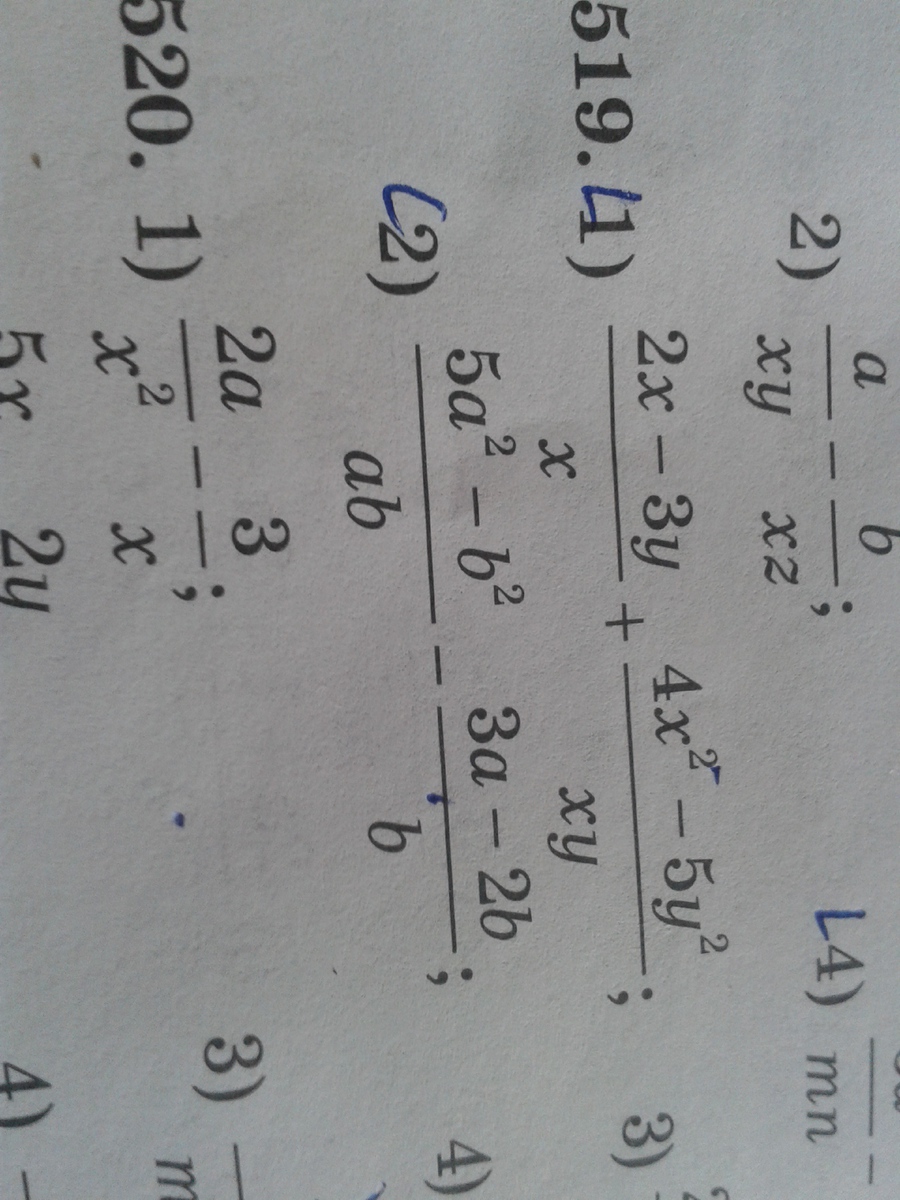 2) a/xy − b/xz; 4) /mn −
519. 1) (2x − 3y)/x + (4x² − 5y²)/xy; 3)
2) (5a² − b²)/ab − (3a − 2b)/b; 4)
520. 1) 2a/x² − 3/x; 3)
5x 2y 4)